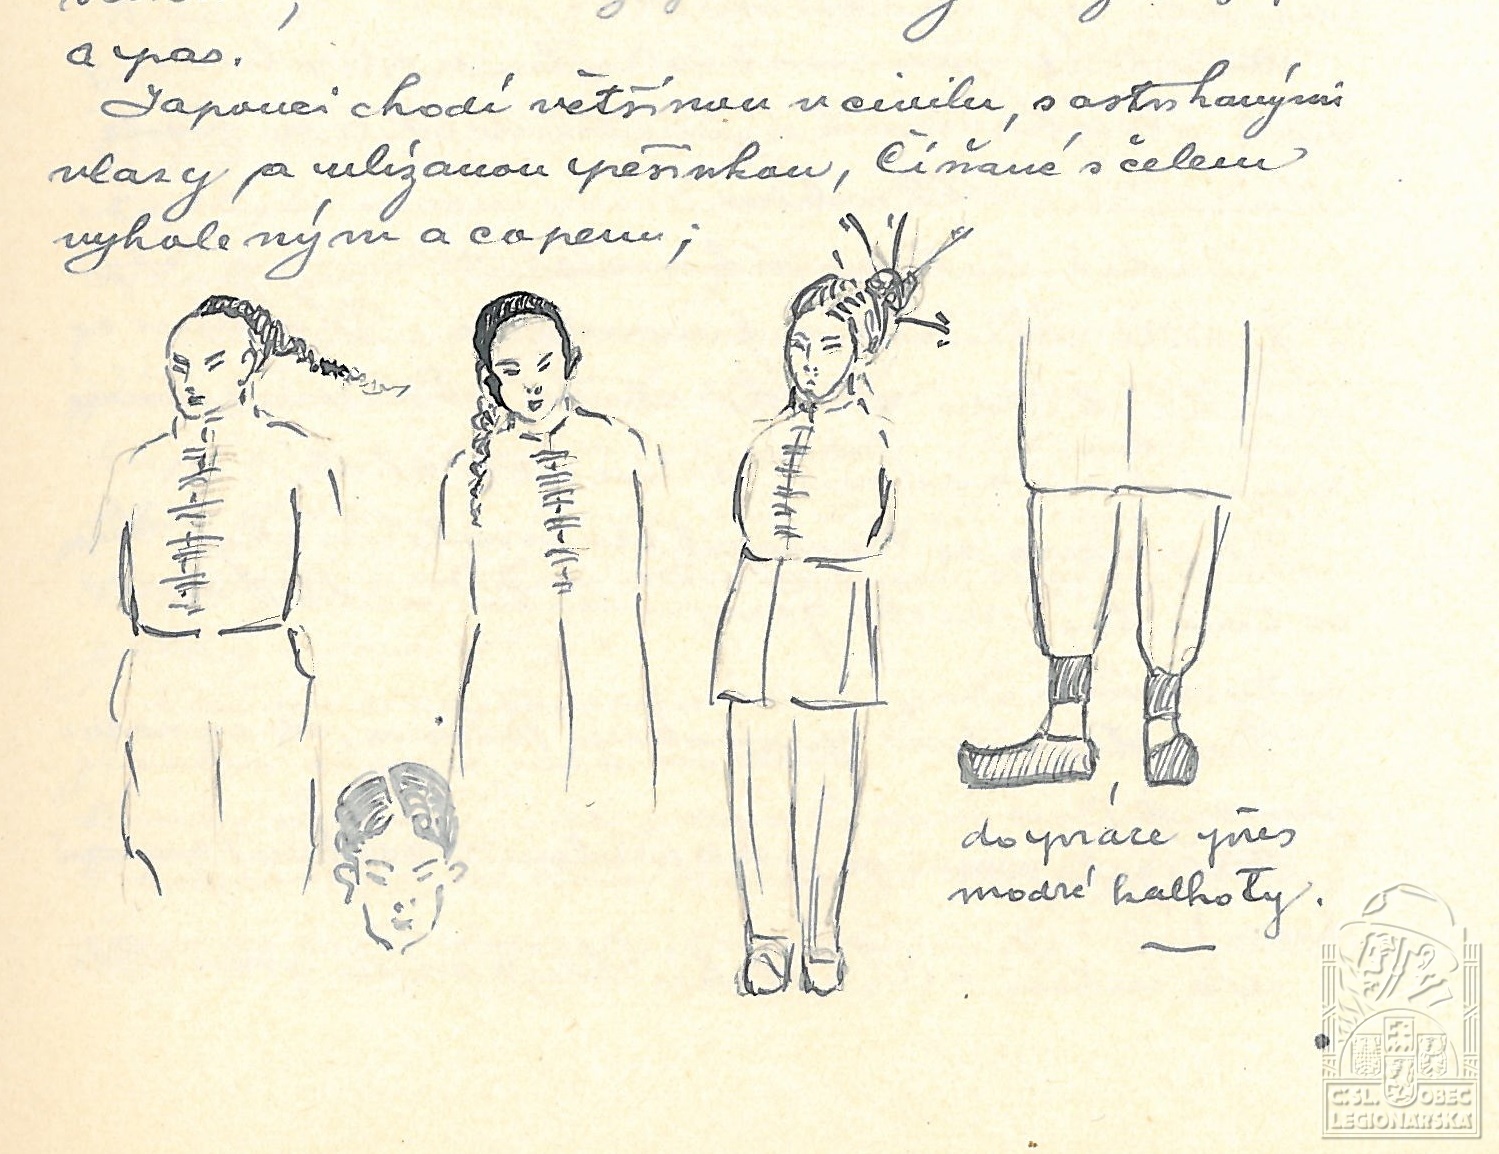 a pas.
Japonci chodí většinou v civilu, s ostříhanými
vlasy a ulízanou pěšinkou, Číňané s čelem
vyholeným a copem;
do práce přes
modré kalhoty.
Č.SL. OBEC
LEGIONÁŘSKÁ